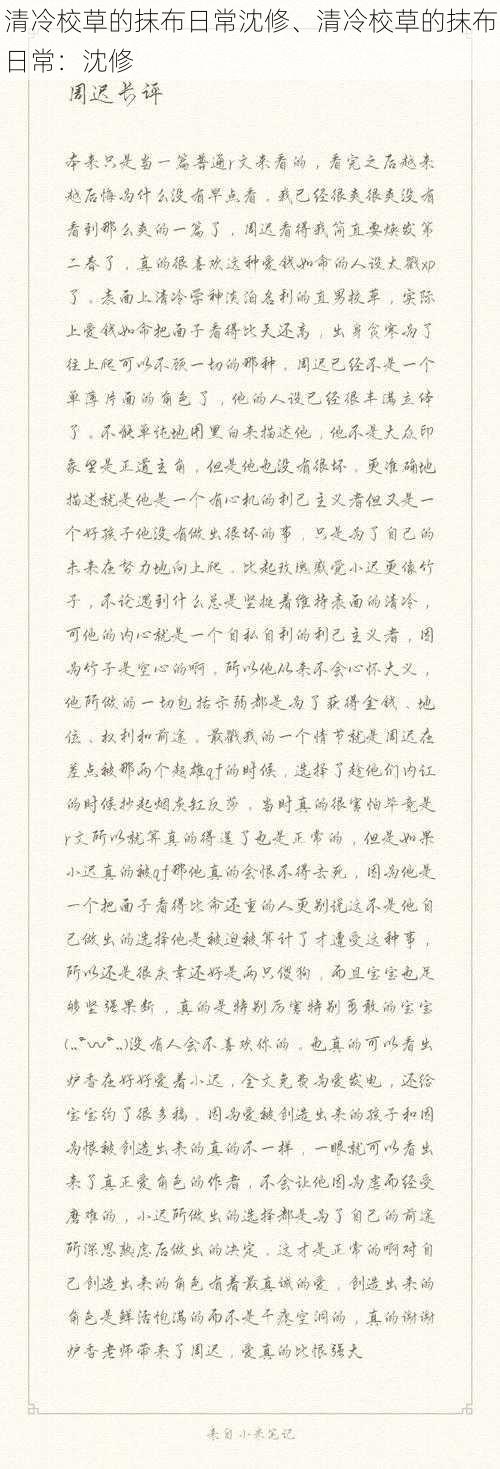 清冷校草的抹布日常沈修、清冷校草的抹布
日常：沈修
周迟长评
本来只是当一篇普通r文来看的，看完之后越来
越后悔为什么没有早点看。我已经很爽很爽没有
看到那么爽的一篇了，周迟看得我简直要焕发第
二春了，真的很喜欢这种爱钱如命的人设太戳xp
了。表面上清冷学神淡泊名利的直男校草，实际
上爱钱如命把面子看得比天还高，出身贫寒为了
往上爬可以不顾一切的那种，周迟已经不是一个
单薄片面的角色了，他的人设已经很丰满立体
了。不能单纯地用黑白来描述他，他不是大众印
象里是正道主角，但是他也没有很坏，更准确地
描述就是他是一个有心机的利己主义者但又是一
个好孩子他没有做出很坏的事，只是为了自己的
未来在努力地向上爬。比起玫瑰感觉小迟更像竹
子，不论遇到什么总是坚挺着维持表面的清冷，
可他的内心就是一个自私自利的利己主义者，因
为竹子是空心的啊，所以他从来不会心怀大义，
他所做的一切包括示弱都是为了获得金钱、地
位、权利和前途。最戳我的一个情节就是周迟在
差点被那两个超雄qf的时候，选择了趁他们内讧
的时候抄起烟灰缸反杀，当时真的很害怕毕竟是
r文所以就算真的得逞了也是正常的，但是如果
小迟真的被qf那他真的会恨不得去死，因为他是
一个把面子看得比命还重的人更别说这不是他自
己做出的选择他是被迫被算计了才遭受这种事，
所以还是很庆幸还好是两只傻狗，而且宝宝也足
够坚强果断，真的是特别厉害特别勇敢的宝宝
(„ᵕᴗᵕ„)没有人会不喜欢你的。也真的可以看出
炉香在好好爱着小迟，全文免费为爱发电，还给
宝宝约了很多稿，因为爱被创造出来的孩子和因
为恨被创造出来的真的不一样，一眼就可以看出
来了真正爱角色的作者，不会让他因为虐而经受
磨难的，小迟所做出的选择都是为了自己的前途
所深思熟虑后做出的决定，这才是正常的啊对自
己创造出来的角色有着最真诚的爱，创造出来的
角色是鲜活饱满的而不是干瘪空洞的，真的谢谢
炉香老师带来了周迟，爱真的比恨强大
来自小米笔记